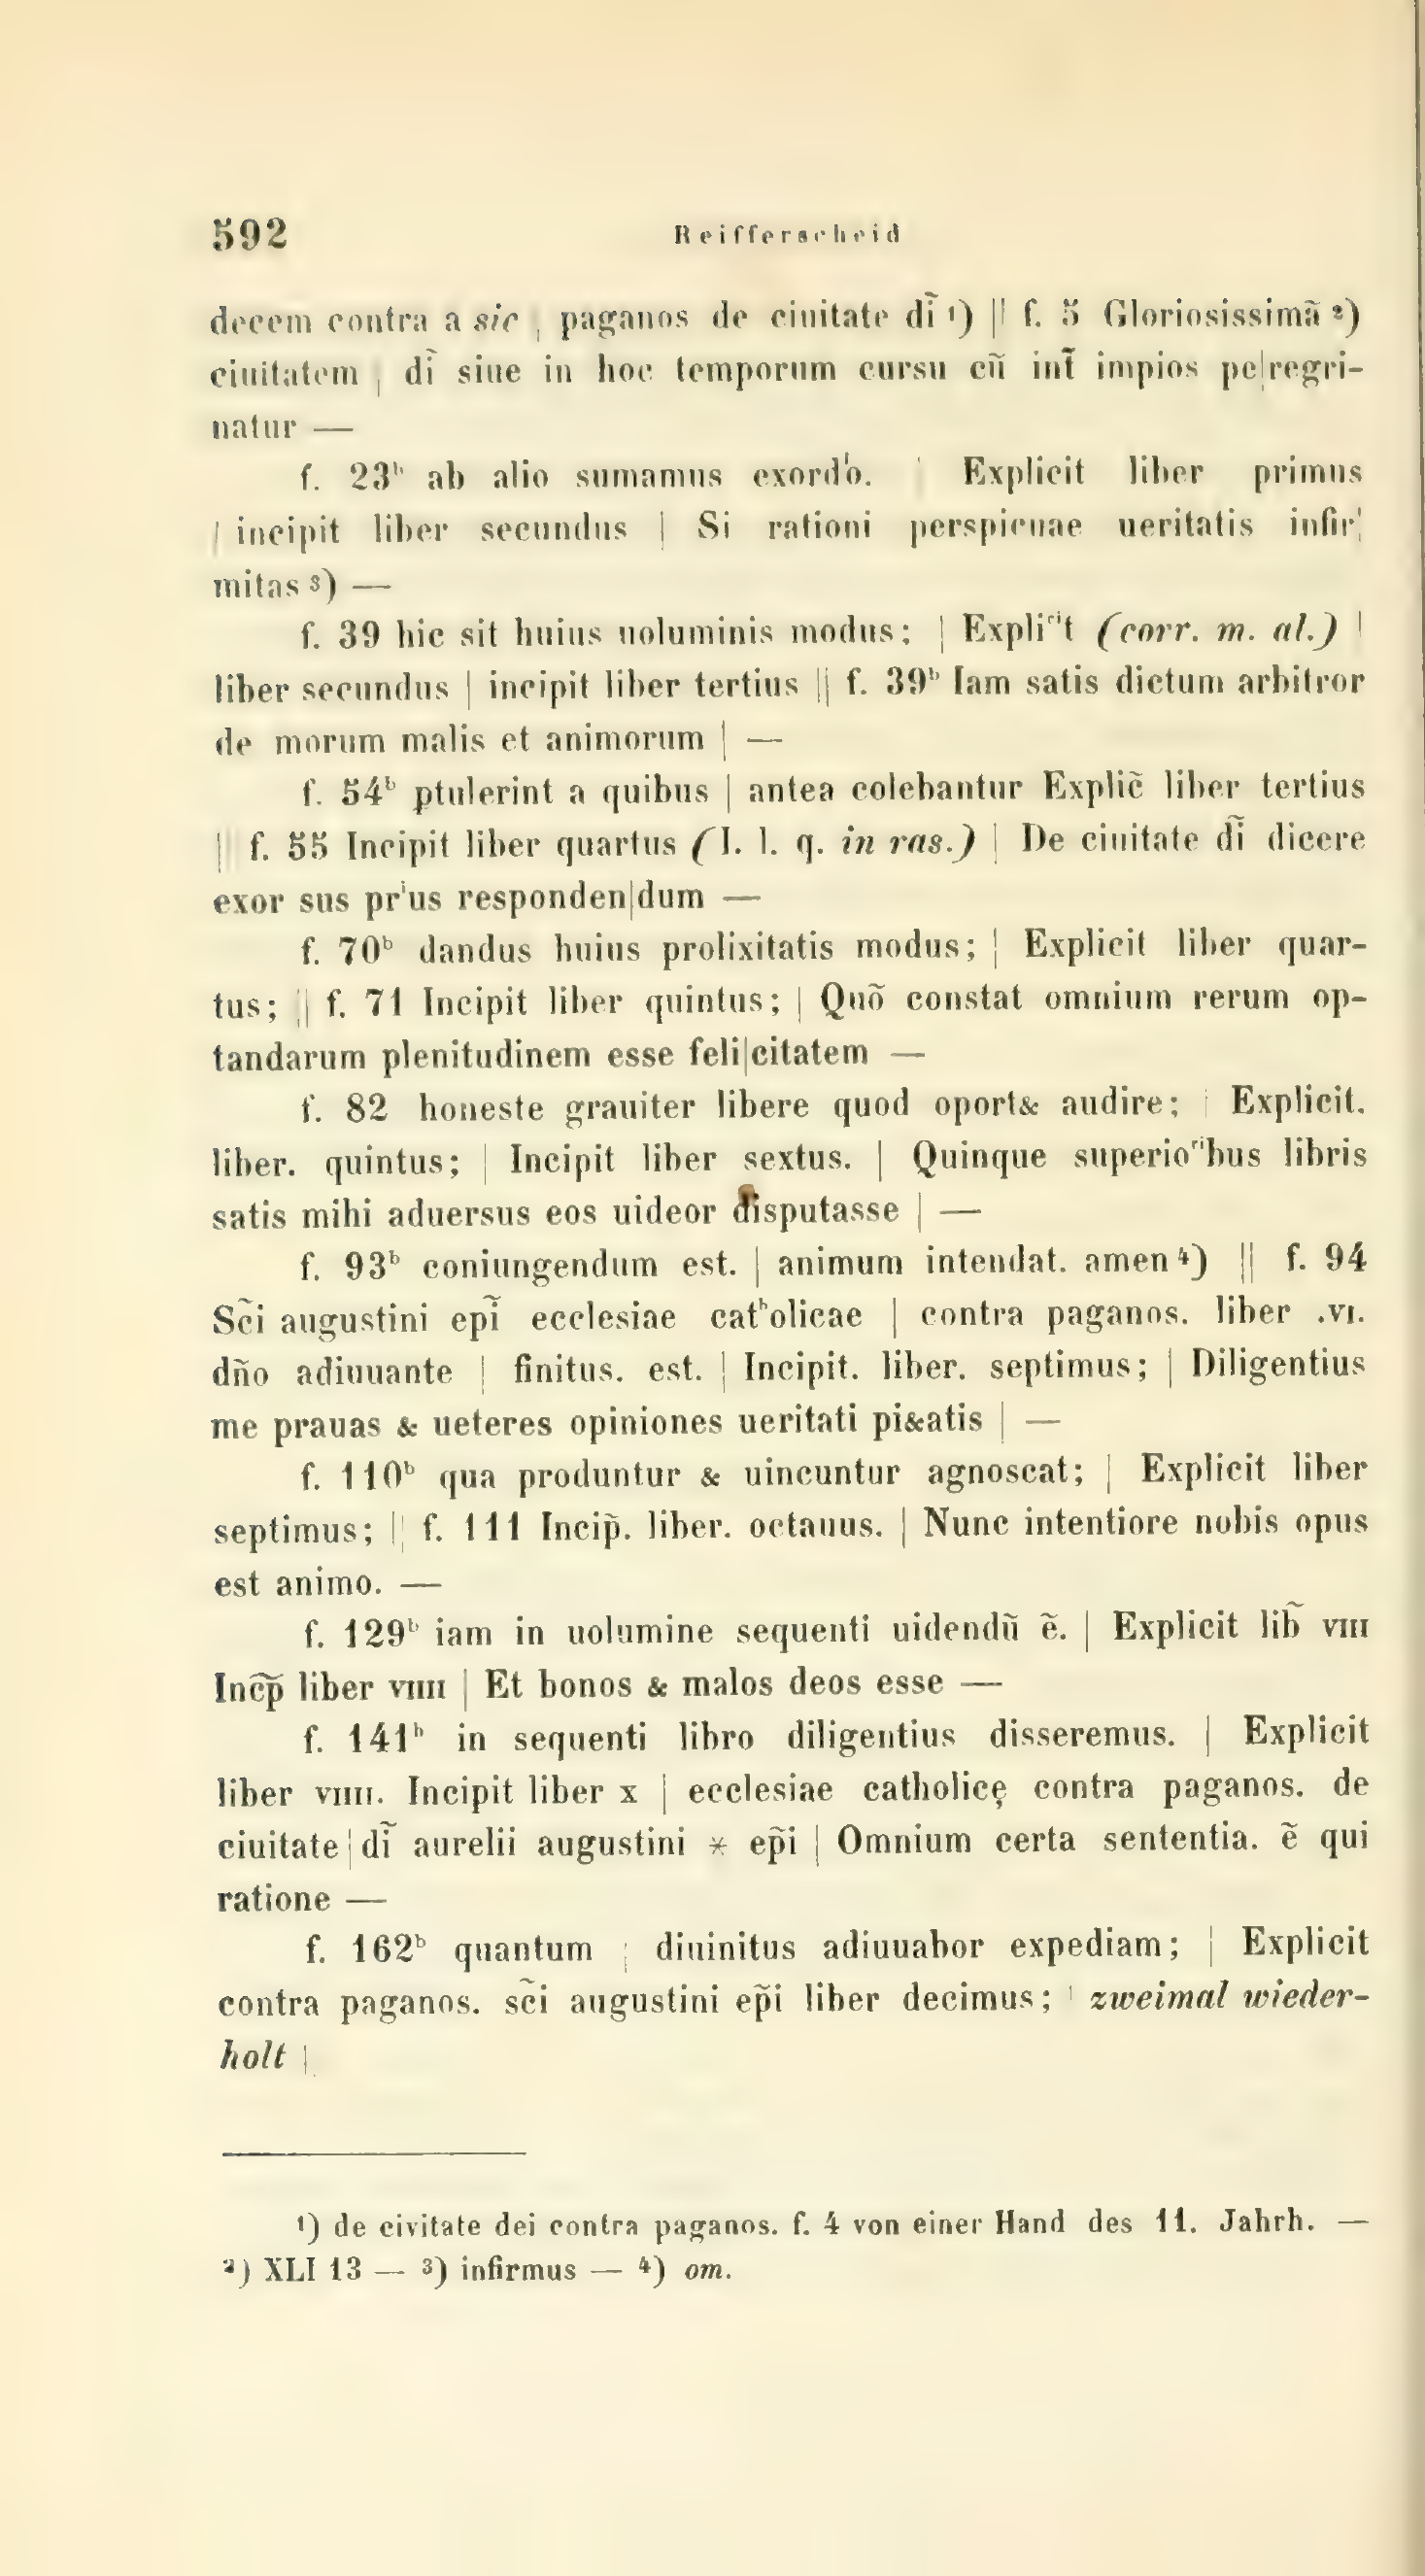 592 Reifferscheid
decem contra a sic | paganos de ciuitate dĩ ¹) || f. 5 Gloriosissimã ²)
ciuitatem | dĩ siue in hoc temporum cursu cũ int̃ impios pe|regri-
natur —
f. 23ᵇ ab alio sumamus exordⁱo. | Explicit liber primus
| incipit liber secundus | Si rationi perspicuae ueritatis infir|
mitas ³) —
f. 39 hic sit huius uoluminis modus; | Expliᶜⁱt (corr. m. al.) |
liber secundus | incipit liber tertius || f. 39ᵇ Iam satis dictum arbitror
de morum malis et animorum | —
f. 54ᵇ ꝑtulerint a quibus | antea colebantur Explic̃ liber tertius
|| f. 55 Incipit liber quartus (I. l. q. in ras.) | De ciuitate dĩ dicere
exor sus prⁱus responden|dum —
f. 70ᵇ dandus huius prolixitatis modus; | Explicit liber quar-
tus; || f. 71 Incipit liber quintus; | Quõ constat omnium rerum op-
tandarum plenitudinem esse feli|citatem —
f. 82 honeste grauiter libere quod oport& audire; | Explicit.
liber. quintus; | Incipit liber sextus. | Quinque superioʳⁱbus libris
satis mihi aduersus eos uideor disputasse | —
f. 93ᵇ coniungendum est. | animum intendat. amen ⁴) || f. 94
Sc̃i augustini epĩ ecclesiae catʰolicae | contra paganos. liber .VI.
dño adiuuante | finitus. est. | Incipit. liber. septimus; | Diligentius
me prauas & ueteres opiniones ueritati pi&atis | —
f. 110ᵇ qua produntur & uincuntur agnoscat; | Explicit liber
septimus; || f. 111 Incip̃. liber. octauus. | Nunc intentiore nobis opus
est animo. —
f. 129ᵇ iam in uolumine sequenti uidendũ ẽ. | Explicit lib̃ VIII
Inc̃p̃ liber VIIII | Et bonos & malos deos esse —
f. 141ᵇ in sequenti libro diligentius disseremus. | Explicit
liber VIIII. Incipit liber X | ecclesiae catholicę contra paganos. de
ciuitate | dĩ aurelii augustini * ep̃i | Omnium certa sententia. ẽ qui
ratione —
f. 162ᵇ quantum | diuinitus adiuuabor expediam; | Explicit
contra paganos. sc̃i augustini ep̃i liber decimus; | zweimal wieder-
holt |
¹) de civitate dei contra paganos. f. 4 von einer Hand des 11. Jahrh. —
²) XLI 13 — ³) infirmus — ⁴) om.